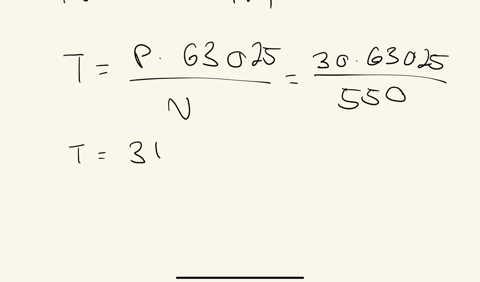 T = P. 63025 / N = 30.63025 / 550
T = 31